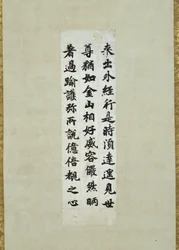 來出外經行是時須達遙見世
尊猶如金山相好威容儼然昞
著過踰護弥所說億倍覩之心